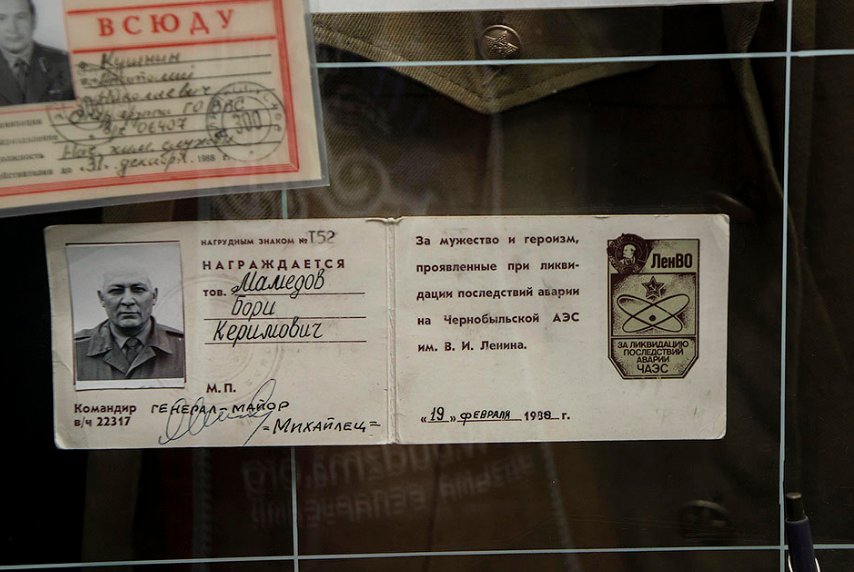 ВСЮДУ
Кушнин
Анатолий
Николаевич
в/ч 06407
300
Нач. хим. службы
до „31" декабря 1988 г.
НАГРУДНЫМ ЗНАКОМ № Т52
НАГРАЖДАЕТСЯ
тов. Мамедов
Бори
Керимович
М.П.
Командир ГЕНЕРАЛ-МАЙОР
в/ч 22317
=МИХАЙЛЕЦ=
За мужество и героизм,
проявленные при ликви-
дации последствий аварии
на Чернобыльской АЭС
им. В. И. Ленина.
«19» ФЕВРАЛЯ 1988 г.
ЛенВО
ЗА ЛИКВИДАЦИЮ
ПОСЛЕДСТВИЙ
АВАРИИ
ЧАЭС